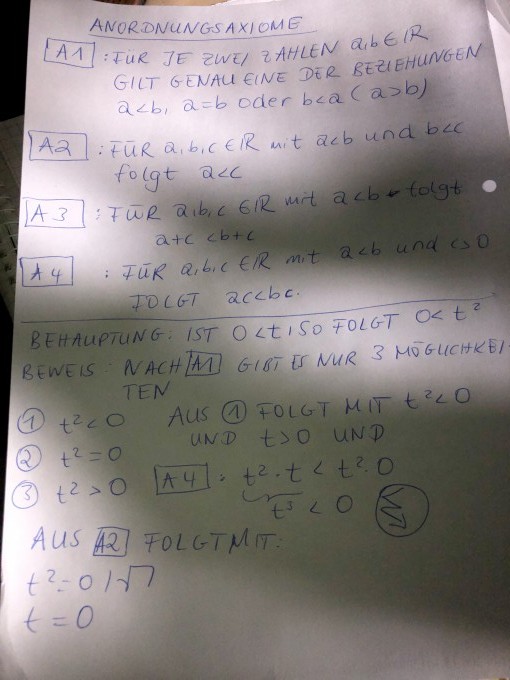 ANORDNUNGSAXIOME
A1 : FÜR JE ZWEI ZAHLEN a,b ∈ IR
GILT GENAU EINE DER BEZIEHUNGEN
a<b, a=b oder b<a (a>b)
A2 : FÜR a,b,c ∈ IR mit a<b und b<c
folgt a<c
A3 : FÜR a,b,c ∈ IR mit a<b folgt
a+c <b+c
A4 : FÜR a,b,c ∈ IR mit a<b und c>0
FOLGT ac<bc.
BEHAUPTUNG: IST 0<t, SO FOLGT 0<t²
BEWEIS: NACH A1 GIBT ES NUR 3 MÖGLICHKEI-
TEN
① t²<0 AUS ① FOLGT MIT t²<0
UND t>0 UND
② t²=0
③ t²>0 A4: t²·t < t²·0
t³ < 0
AUS A2 FOLGT MIT:
t²=0 /√
t=0